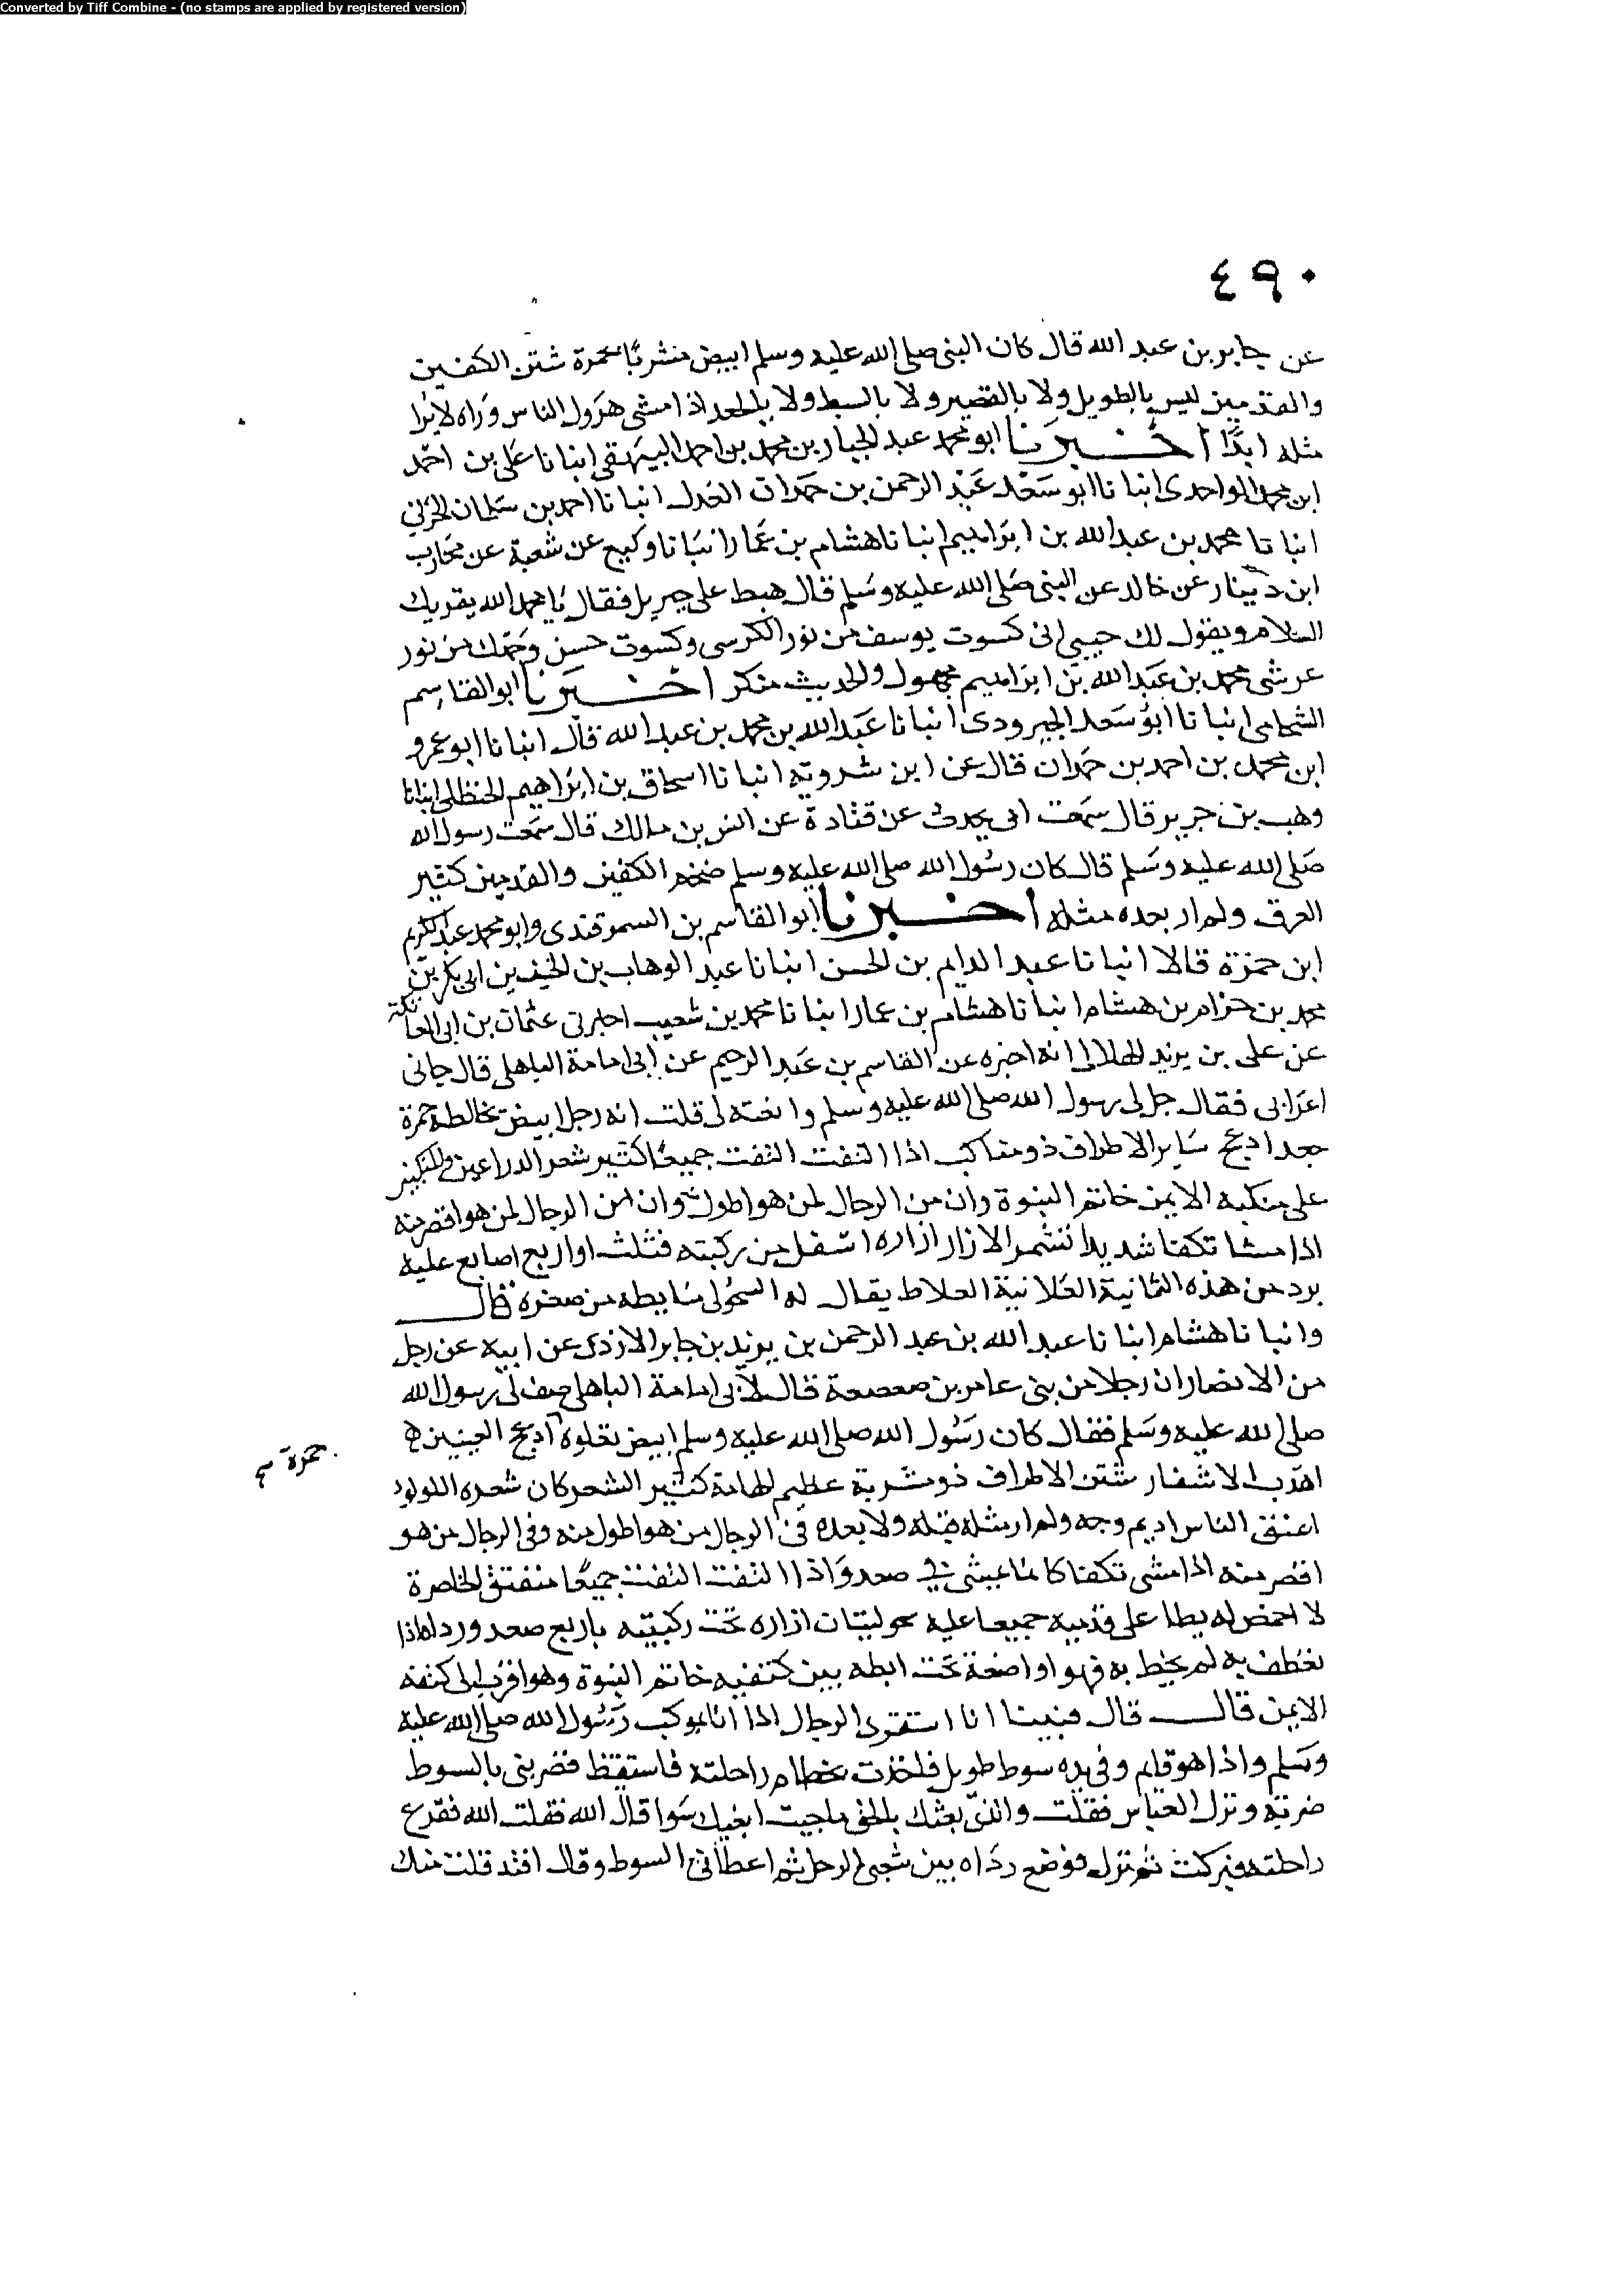 Converted by Tiff Combine - (no stamps are applied by registered version)
٤٩٠
عن جابر بن عبد الله قال كان النبي صلى الله عليه وسلم ابيض مشربا بحمرة شثن الكفين
والقدمين ليس بالطويل ولا بالقصير ولا بالسبط ولا بالجعد اذا مشى هرول الناس وراه لا يرا
مثله ابدًا اخبرنا ابو محمد عبد الجبار بن محمد بن احمد البيهقي انبانا على بن احمد
ابن محمد الواحدى انبانا ابو سعد عبد الرحمن بن حمدان العدل انبانا احمد بن سلمان الحربي
انبانا محمد بن عبد الله بن ابراهيم انبانا هشام بن عمار انبانا وكيع عن شعبة عن محارب
ابن دينار عن خالد عن النبي صلى الله عليه وسلم قال هبط على جبريل فقال يا محمد الله يقريك
السلام ويقول لك حبيبي اني كسوت يوسف من نور الكرسى وكسوت حسن وجهك من نور
عرشى محمد بن عبد الله بن ابراهيم مجهول والحديث منكر اخبرنا ابو القاسم
الشحامى انبانا ابو سعد الجيرودى انبانا عبد الله بن محمد بن عبد الله قال انبانا ابو عمرو
ابن محمد بن احمد بن حمدان قال عن ابن شرويه انبانا اسحاق بن ابراهيم الحنظلى انبانا
وهب بن جرير قال سمعت ابى يحدث عن قتادة عن انس بن مالك قال سمعت رسول الله
صلى الله عليه وسلم قال كان رسول الله صلى الله عليه وسلم ضخم الكفين والقدمين كثير
العرق ولم ار بعده مثله اخبرنا ابو القاسم بن السمرقندى وابو محمد عبد الكريم
ابن حمزة قالا انبانا عبد الدايم بن الحسن انبانا عبد الوهاب بن الحسن ابى بكر بن
محمد بن خزام بن هشام انبانا هشام بن عمار انبانا محمد بن شعيب اخبرنى عثمان بن ابى العاتكة
عن على بن يزيد الهلالى انه اخبره عن القاسم بن عبد الرحيم عن ابى امامة الباهلى قال جانى
اعرابى فقال رسول الله صلى الله عليه وسلم وانعته لى قلت انه رجل ابيض تخالطه حمرة
جعد ادعج سابر الاطراف ذو مناكب اذا التفت التفت جميعًا كثير شعر الذراعين والمنكبين
على منكبه الايمن خاتم النبوة وان من الرجال لمن هو اطول وان من الرجال لمن هو اقصر منه
اذا مشا تكفا شديدا تشمر الازار ازاره اسفل من ركبته فثلث او اربع اصابع عليه
برد من هذه الثمانية العلانية العلاط يقال له السحولى بابطه من صغره قال
وانبانا هشام انبانا عبد الله بن عبد الرحمن بن يزيد بن جابر الازدى عن ابيه عن رجل
من الانصار ان رجلا من بنى عامر بن صعصعة قال لابى امامة الباهلى صف لى رسول الله
صلى الله عليه وسلم فقال كان رسول الله صلى الله عليه وسلم ابيض تعلوه ادعج العينين
حمرة صح
اهدب الاشفار شثن الاطراف ذو مشربة عظيم الهامة كثير الشعر كان شعره اللولو
اعنق الناس اديم وجه ولم ار مثله قبله ولا بعده فى الرجال من هو اطول منه وفى الرجال من هو
اقصر منه اذا مشى تكفا كانما يمشى فى صعد واذا التفت التفت جميعًا منفتق الخاصرة
لا اخمص له يطا على قدميه جميعا عليه سحوليتان ازاره تحت ركبتيه باربع صعد ورداه اذا
تعطف به لم يحط به فهو واضعه تحت ابطه بين كتفيه خاتم النبوة وهو اقرب الى كتفه
الايمن قال قال فبينا انا استقرى الرجال اذا انا بموكب رسول الله صلى الله عليه
وسلم واذا هو قايم وفى يده سوط طويل فاخذت بخطام راحلته فاستيقظ فضربنى بالسوط
ضربة ونزل العباس فقلت والذى بعثك بالحق ما جيت ابغيك سوا قال الله فقلت الله فقرع
راحلته فبركت ثم نزل فوضع رداه بين شعبى الرحل ثم اعطانى السوط وقال اقتد قلت منك